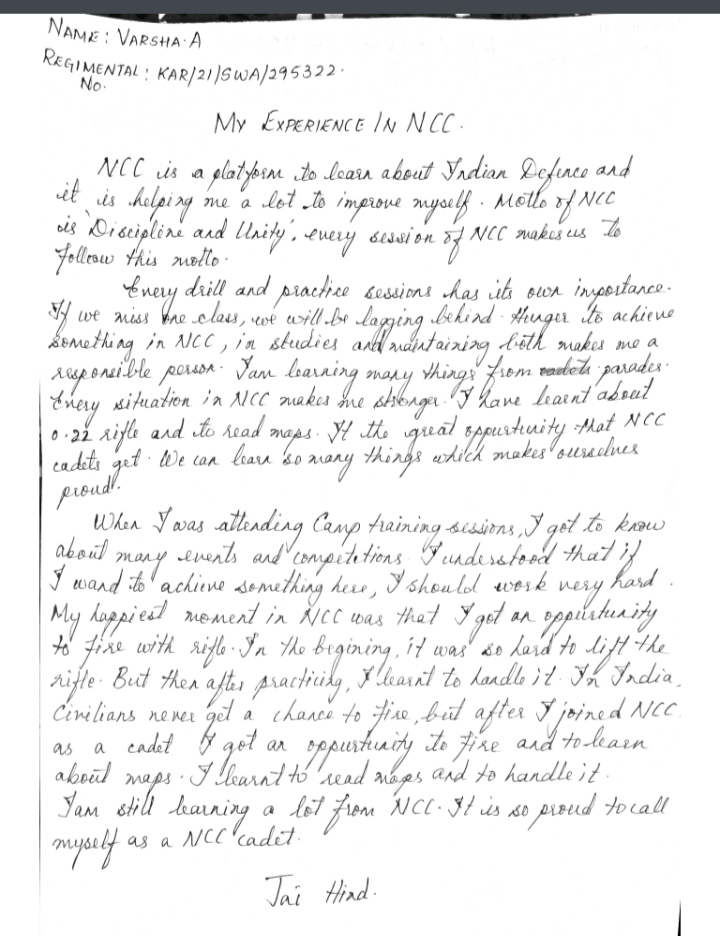 NAME : VARSHA·A
REGIMENTAL : KAR/21/SWA/295322.
No.
MY EXPERIENCE IN NCC.
NCC is a platform to learn about Indian Defence and
it is helping me a lot to improve myself. Motto of NCC
is 'Discipline and Unity', every session of NCC makes us to
follow this motto.
Every drill and practice sessions has its own importance.
If we miss one class, we will be lagging behind. Hunger to achieve
something in NCC, in studies and maintaining both makes me a
responsible person. I am learning many things from cadets parades.
Every situation in NCC makes me stronger. I have learnt about
0.22 rifle and to read maps. It the great oppurtunity that NCC
cadets get. We can learn so many things which makes ourselves
proud.
When I was attending Camp training sessions, I got to know
about many events and competitions. I understood that if
I want to achieve something here, I should work very hard.
My happiest moment in NCC was that I got an oppurtunity
to fire with rifle. In the begining, it was so hard to lift the
rifle. But then after practicing, I learnt to handle it. In India,
Civilians never get a chance to fire, but after I joined NCC
as a cadet I got an oppurtunity to fire and to learn
about maps. I learnt to read maps and to handle it.
I am still learning a lot from NCC. It is so proud to call
myself as a NCC cadet.
Jai Hind.